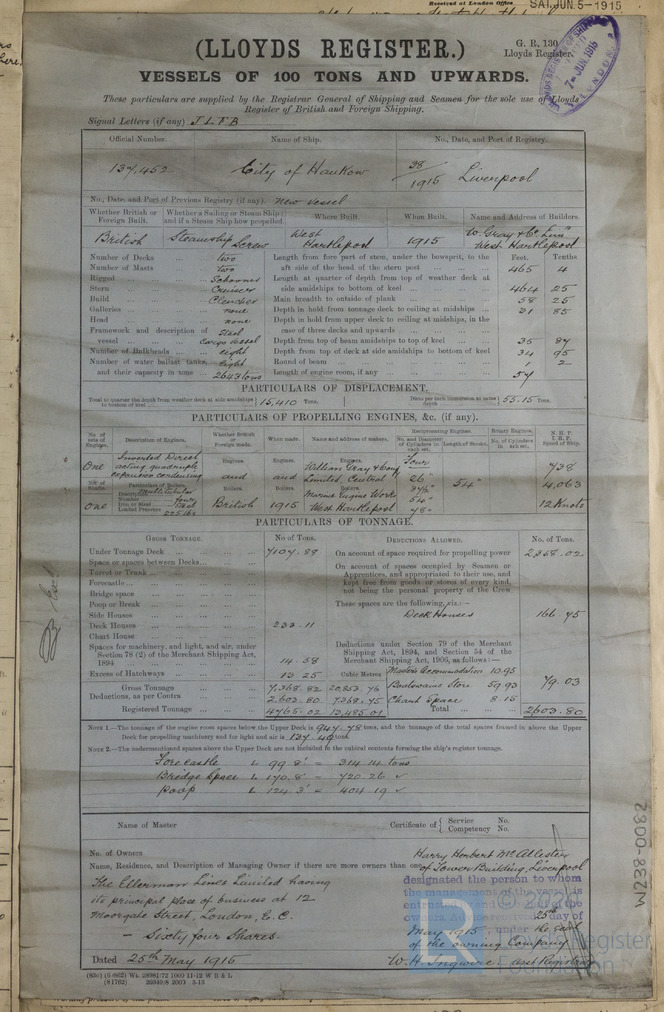 Received at London Office. SAT. JUN. 5-1915
(LLOYDS REGISTER.)
G. R. 130
Lloyds Register.
VESSELS OF 100 TONS AND UPWARDS.
These particulars are supplied by the Registrar General of Shipping and Seamen for the sole use of Lloyds
Register of British and Foreign Shipping.
Signal Letters (if any) J L F B
Official Number. Name of Ship. No., Date, and Port of Registry.
137,452 City of Hankow 38/1915 Liverpool
No., Date, and Port of Previous Registry (if any). New vessel
Whether British or Foreign Built. Whether a Sailing or Steam Ship; and if a Steam Ship how propelled. Where Built When Built. Name and Address of Builders.
British Steamship Screw West Hartlepool 1915 W. Gray & Co. Limd West Hartlepool
Feet. Tenths
Number of Decks two Length from fore part of stem, under the bowsprit, to the
Number of Masts two aft side of the head of the stern post 465 4
Rigged Schooner Length at quarter of depth from top of weather deck at
Stern Cruiser side amidships to bottom of keel 464 25
Build Clencher Main breadth to outside of plank 58 25
Galleries none Depth in hold from tonnage deck to ceiling at midships 21 85
Head none Depth in hold from upper deck to ceiling at midships, in the
Framework and description of Steel case of three decks and upwards
vessel Cargo vessel Depth from top of beam amidships to top of keel 35 87
Number of Bulkheads eight Depth from top of deck at side amidships to bottom of keel 34 95
Number of water ballast tanks, eight Round of beam 1 2
and their capacity in tons 2643 tons Length of engine room, if any 54
PARTICULARS OF DISPLACEMENT.
Total to quarter the depth from weather deck at side amidships to bottom of keel 15,410 Tons. Ditto per inch immersion at same depth 55.15 Tons.
PARTICULARS OF PROPELLING ENGINES, &c. (if any).
No. of sets of Engines. Description of Engines. Whether British or Foreign made. When made. Name and address of makers. Reciprocating Engines. Rotary Engines. N.H.P. I.H.P. Speed of Ship.
No. and Diameter of Cylinders in each set. Length of Stroke. No. of Cylinders in each set.
One Inverted Direct acting quadruple expansion condensing Engines. Engines. Engines. William Gray & Compy Four 738
No. of Shafts. Particulars of Boilers. and and Limited Central 26" 54" 4,063
Description Multitubular Boilers. Boilers. Boilers. Marine Engine Works 54"
Number four
One Iron or Steel Steel British 1915 West Hartlepool 78" 12 Knots
Loaded Pressure 225 lbs
PARTICULARS OF TONNAGE.
GROSS TONNAGE. No. of Tons. DEDUCTIONS ALLOWED. No. of Tons.
Under Tonnage Deck 7107.88 On account of space required for propelling power 2358.02
Space or spaces between Decks On account of spaces occupied by Seamen or
Turret or Trunk Apprentices, and appropriated to their use, and
Forecastle kept free from goods or stores of every kind,
Bridge space not being the personal property of the Crew
Poop or Break These spaces are the following, viz.:—
Side Houses Deck Houses 166.75
Deck Houses 233.11
Chart House
Spaces for machinery, and light, and air, under Deductions under Section 79 of the Merchant
Section 78 (2) of the Merchant Shipping Act, Shipping Act, 1894, and Section 54 of the
1894 14.58 Merchant Shipping Act, 1906, as follows:—
Excess of Hatchways 13.25 Cubic Metres Master's Accommodation 10.95
Gross Tonnage 7,368.82 20,853.76 Boatswains Store 59.93 79.03
Deductions, as per Contra 2,603.80 7,368.75 Chart Space 8.15
Registered Tonnage 4765.02 13,485.01 Total 2603.80
NOTE 1.—The tonnage of the engine room spaces below the Upper Deck is 947.78 tons, and the tonnage of the total spaces framed in above the Upper
Deck for propelling machinery and for light and air is 137.49 tons.
NOTE 2.—The undermentioned spaces above the Upper Deck are not included in the cubical contents forming the ship's register tonnage.
Forecastle L 99.8' = 314.14 tons
Bridge Space L 170.8' = 720.26
Poop L 124.3' = 404.19
Name of Master Certificate of { Service No. Competency No.
No. of Owners
Name, Residence, and Description of Managing Owner if there are more owners than one
Harry Herbert McAllester
of Tower Building, Liverpool
The Ellerman Lines Limited having designated the person to whom
its principal place of business at 12 the management of the vessel is
Moorgate Street, London, E.C.
— Sixty four Shares. 25th day of
May 1915, under the seal
of the owning Company
Dated 25th May 1915 W. H. Ingwire asst Registrar
(83c) (6-862) Wt. 28981/72 1000 11-12 W B & L
(81762) 26940/8 2000 3-13
W238-0082
LR Lloyd's Register Foundation